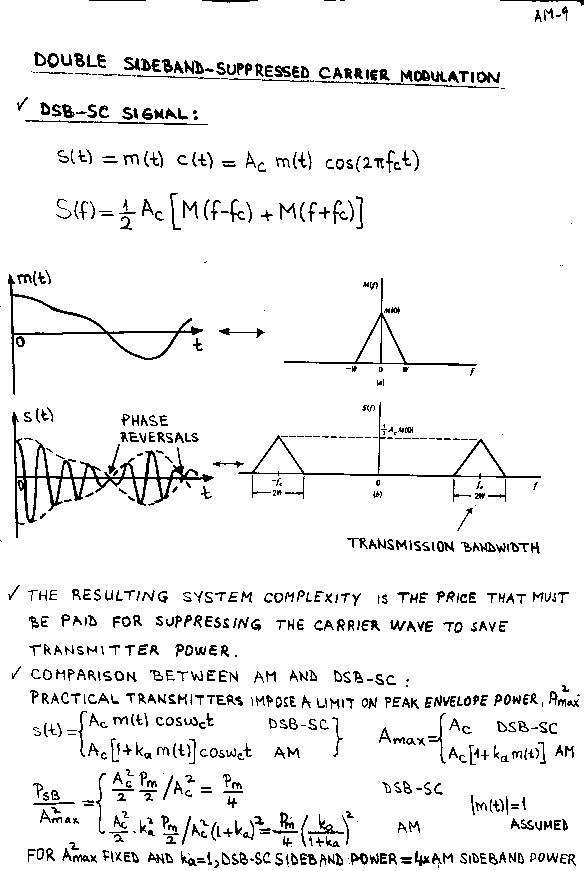 AM-9
DOUBLE SIDEBAND-SUPPRESSED CARRIER MODULATION
✓ DSB-SC SIGNAL:
s(t) = m(t) c(t) = Ac m(t) cos(2πfct)
S(f) = 1/2 Ac [M(f-fc) + M(f+fc)]
m(t)
0
t
M(f)
M(0)
-W 0 W f
(a)
s(t)
PHASE
REVERSALS
0
t
S(f)
1/2 Ac M(0)
-fc 0 fc f
2W (b) 2W
TRANSMISSION BANDWIDTH
✓ THE RESULTING SYSTEM COMPLEXITY IS THE PRICE THAT MUST
BE PAID FOR SUPPRESSING THE CARRIER WAVE TO SAVE
TRANSMITTER POWER.
✓ COMPARISON BETWEEN AM AND DSB-SC:
PRACTICAL TRANSMITTERS IMPOSE A LIMIT ON PEAK ENVELOPE POWER, A²max
s(t) = { Ac m(t) cosωct DSB-SC
Ac [1+ka m(t)] cosωct AM }
Amax = { Ac DSB-SC
Ac [1+ka m(t)] AM
PSB/A²max = { A²c/2 Pm/2 / A²c = Pm/4 DSB-SC
A²c/2 · k²a Pm/2 / A²c (1+ka)² = Pm/4 (ka/1+ka)² AM
|m(t)|=1
ASSUMED
FOR A²max FIXED AND ka=1, DSB-SC SIDEBAND POWER = 4x AM SIDEBAND POWER